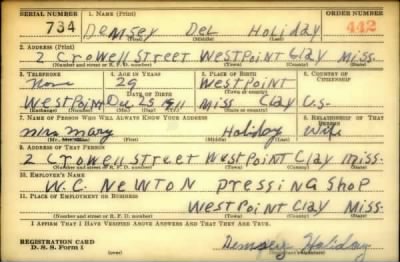 SERIAL NUMBER 1. NAME (Print) ORDER NUMBER
734 Demsey Del Holiday 442
(First) (Middle) (Last)
2. ADDRESS (Print)
2 Crowell Street WestPoint Clay Miss.
(Number and street or R. F. D. number) (Town) (County) (State)
3. TELEPHONE 4. AGE IN YEARS 5. PLACE OF BIRTH 6. COUNTRY OF CITIZENSHIP
None 29 WestPoint
DATE OF BIRTH (Town or county)
WestPoint Dec 25 1911 Miss Clay U.S.
(Exchange) (Number) (Mo.) (Day) (Yr.) (State or country)
7. NAME OF PERSON WHO WILL ALWAYS KNOW YOUR ADDRESS 8. RELATIONSHIP OF THAT PERSON
Mrs Mary Holiday Wife
(Mr., Mrs., Miss) (First) (Middle) (Last)
9. ADDRESS OF THAT PERSON
2 Crowell Street WestPoint Clay Miss.
(Number and street or R. F. D. number) (Town) (County) (State)
10. EMPLOYER'S NAME
W.C. Newton Pressing Shop
11. PLACE OF EMPLOYMENT OR BUSINESS
WestPoint Clay Miss.
(Number and street or R. F. D. number) (Town) (County) (State)
I AFFIRM THAT I HAVE VERIFIED ABOVE ANSWERS AND THAT THEY ARE TRUE.
REGISTRATION CARD
D. S. S. Form 1 (over) Demsey Holiday
(Registrant's signature)